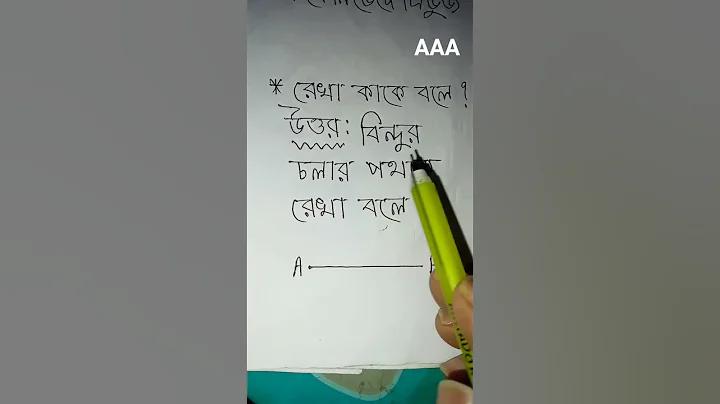 AAA
* রেখা কাকে বলে ?
উত্তর : বিন্দুর
চলার
রেখা বলে
A